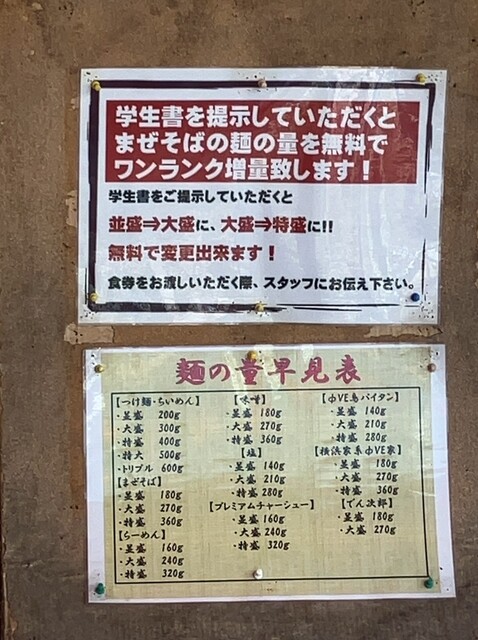 学生書を提示していただくと
まぜそばの麺の量を無料で
ワンランク増量致します！
学生書をご提示していただくと
並盛⇒大盛に、大盛⇒特盛に!!
無料で変更出来ます！
食券をお渡しいただく際、スタッフにお伝え下さい。
麺の量早見表
【つけ麺・らいめん】
・並盛 200g
・大盛 300g
・特盛 400g
・特大 500g
・トリプル 600g
【まぜそば】
・並盛 180g
・大盛 270g
・特盛 360g
【らーめん】
・並盛 160g
・大盛 240g
・特盛 320g
【味噌】
・並盛 180g
・大盛 270g
・特盛 360g
【塩】
・並盛 140g
・大盛 210g
・特盛 280g
【プレミアムチャーシュー】
・並盛 160g
・大盛 240g
・特盛 320g
【中VE鳥パイタン】
・並盛 140g
・大盛 210g
・特盛 280g
【横浜家系中VE家】
・並盛 180g
・大盛 270g
・特盛 360g
【でん次郎】
・並盛 180g
・大盛 270g